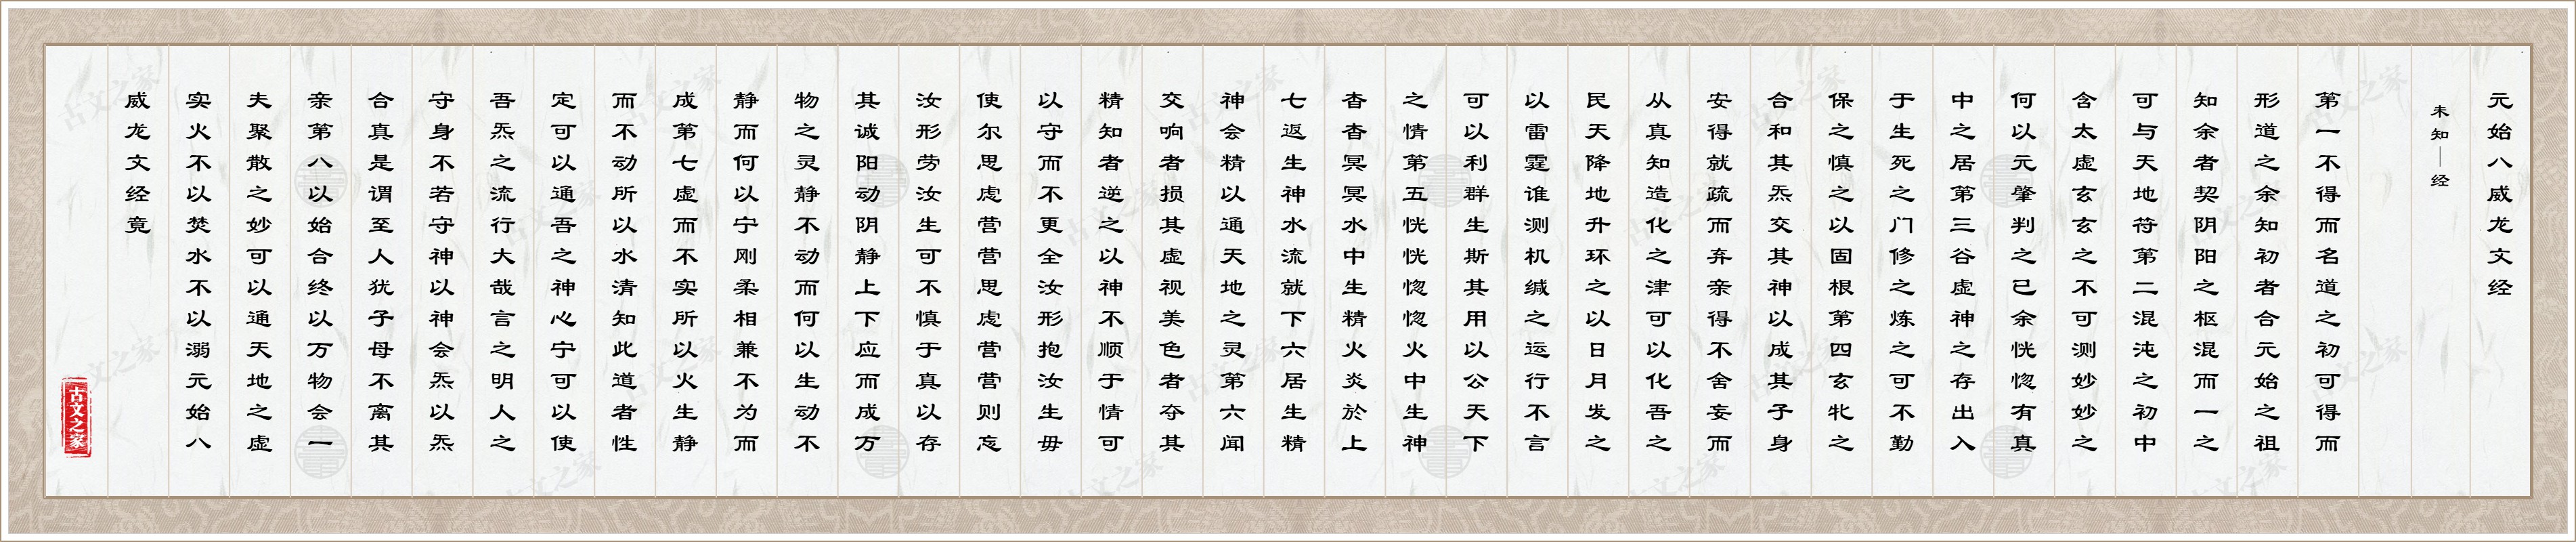 元始八威龙文经
未知｜经
第一不得而名道之初可得而
形道之余知初者合元始之祖
知余者契阴阳之枢混而一之
可与天地符第二混沌之初中
含太虚玄玄之不可测妙妙之
何以元肇判之已余恍惚有真
中之居第三谷虚神之存出入
于生死之门修之炼之可不勤
保之慎之以固根第四玄牝之
合和其炁交其神以成其子身
安得就疏而弃亲得不舍妄而
从真知造化之津可以化吾之
民天降地升环之以日月发之
以雷霆谁测机缄之运行不言
可以利群生斯其用以公天下
之情第五恍恍惚惚火中生神
杳杳冥冥水中生精火炎於上
七返生神水流就下六居生精
神会精以通天地之灵第六闻
交响者损其虚视美色者夺其
精知者逆之以神不顺于情可
以守而不更全汝形抱汝生毋
使尔思虑营营思虑营营则忘
汝形劳汝生可不慎于真以存
其诚阳动阴静上下应而成万
物之灵静不动而何以生动不
静而何以宁刚柔相兼不为而
成第七虚而不实所以火生静
而不动所以水清知此道者性
定可以通吾之神心宁可以使
吾炁之流行大哉言之明人之
守身不若守神以神会炁以炁
合真是谓至人犹子母不离其
亲第八以始合终以万物会一
夫聚散之妙可以通天地之虚
实火不以焚水不以溺元始八
威龙文经竟
古文之家